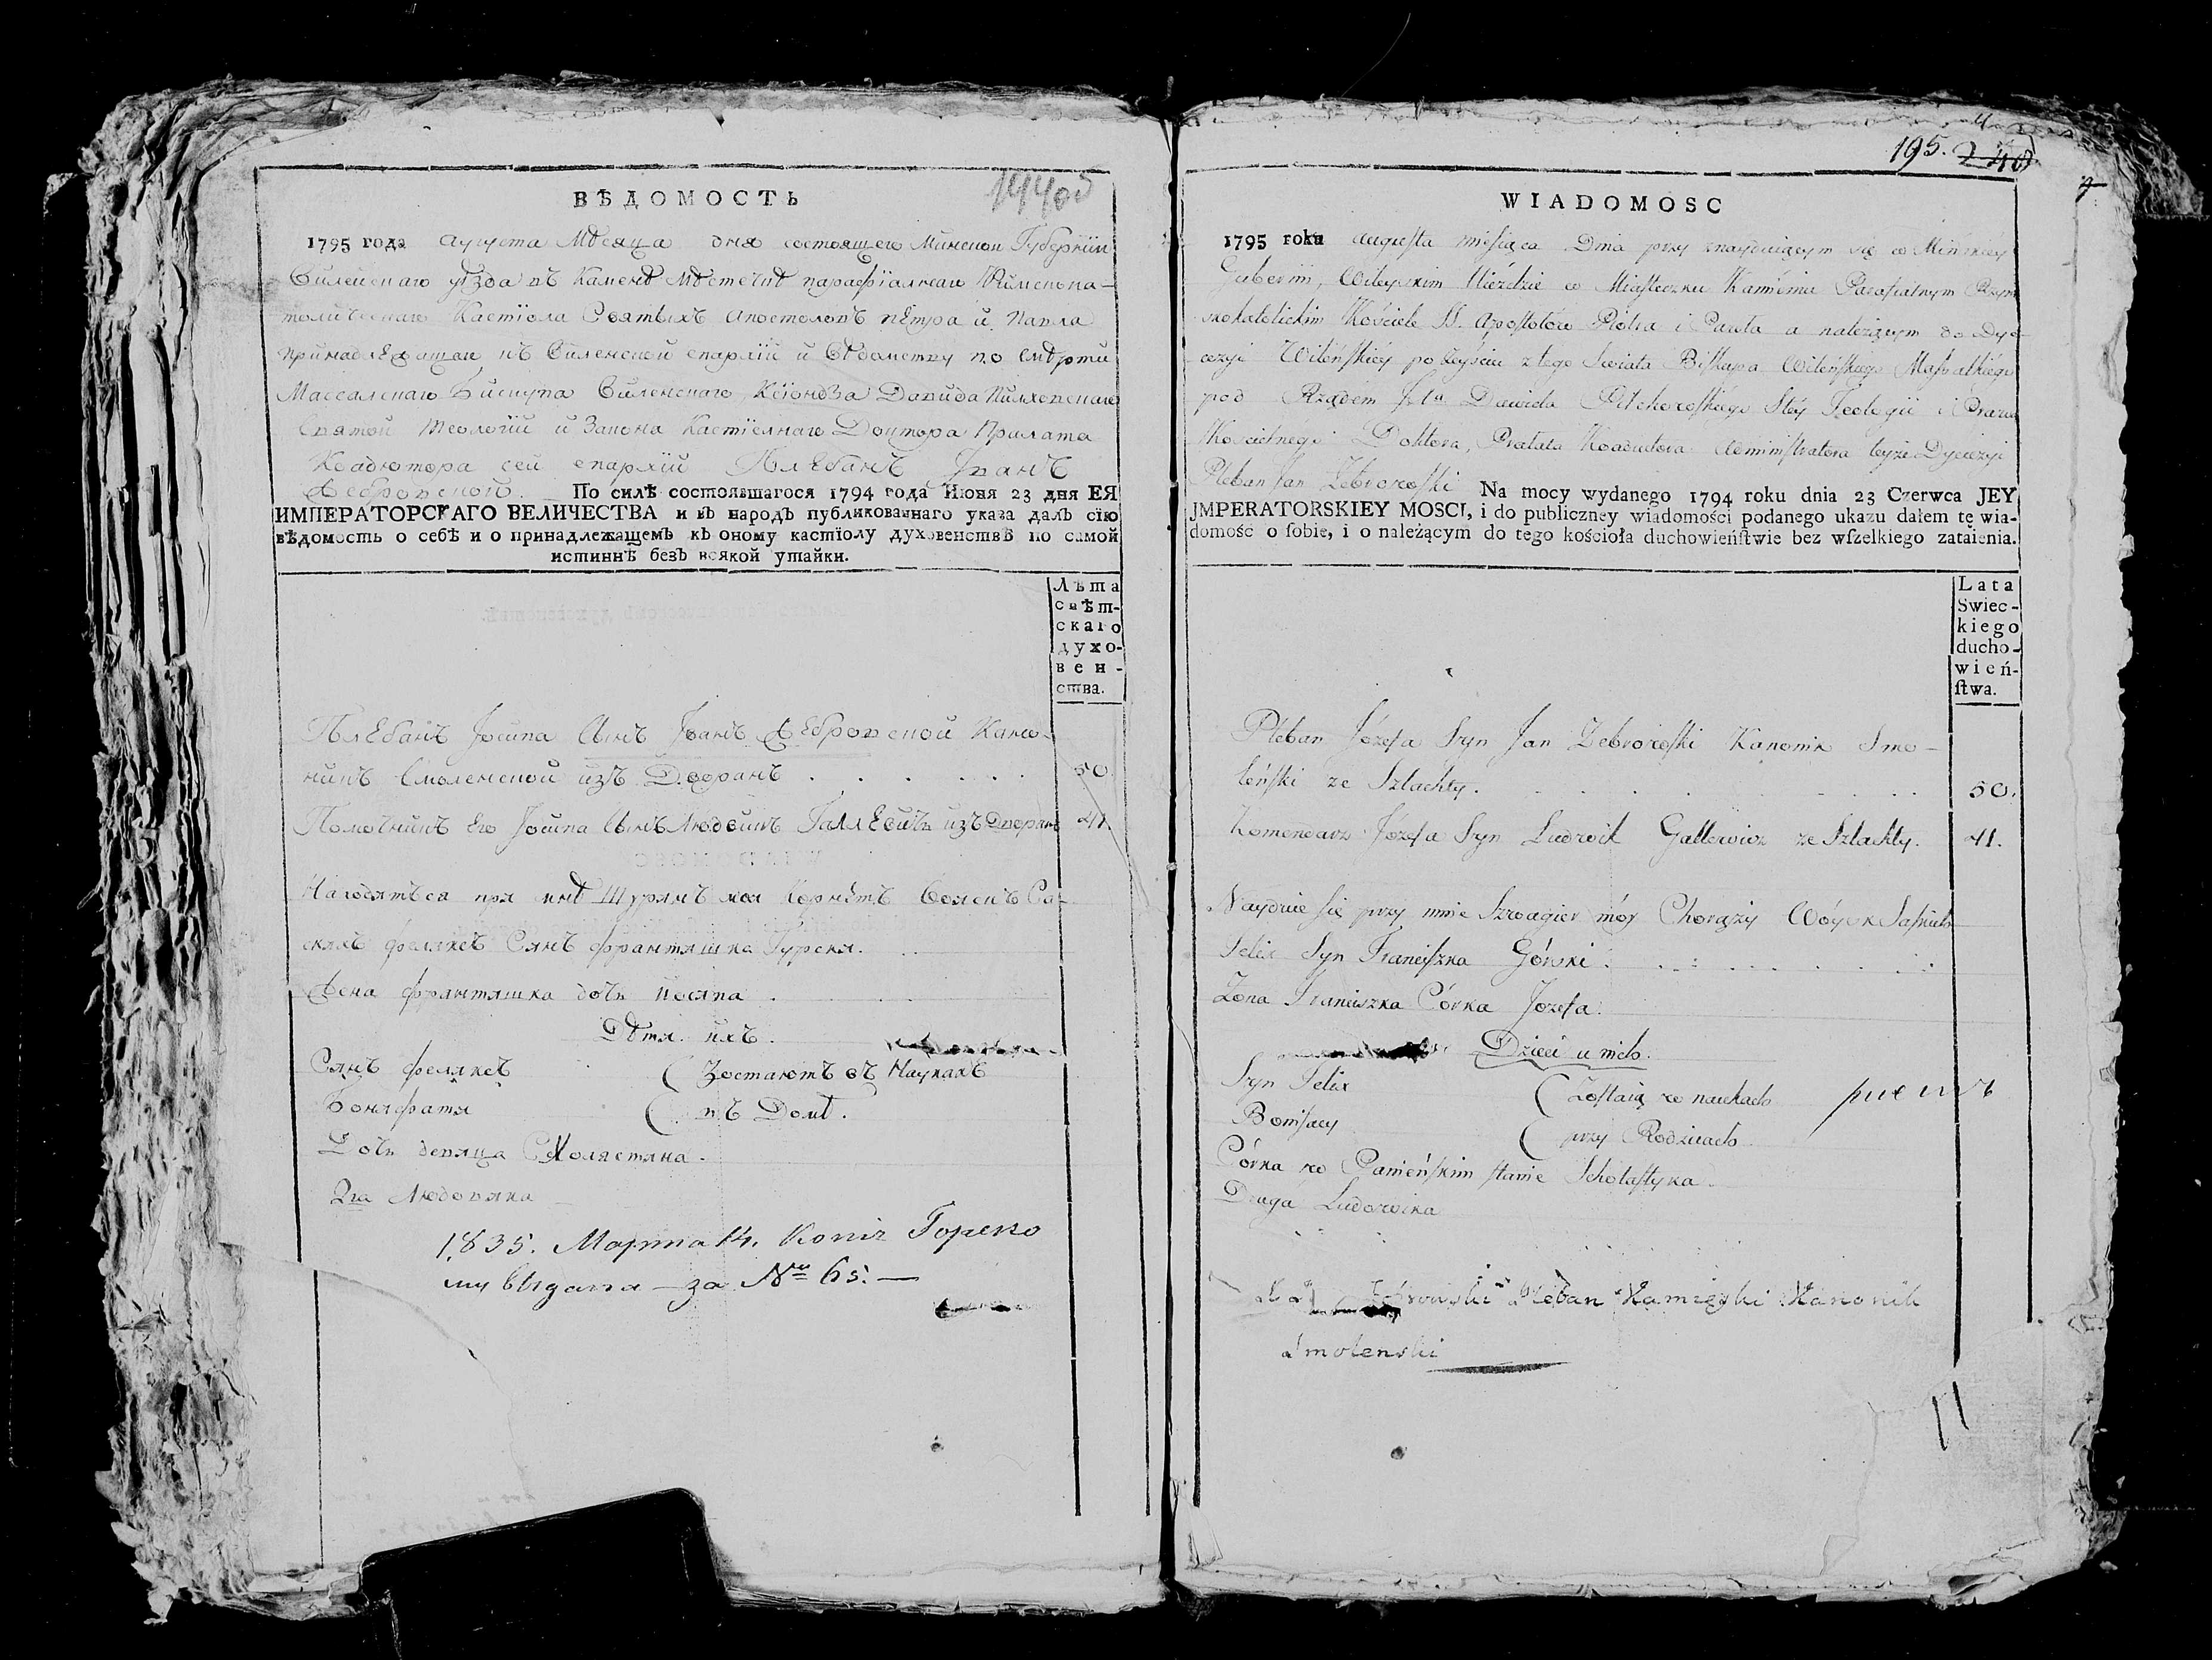 ВѢДОМОСТЬ
1795 года Августа Мѣсяца дня состоящего Минской Губернїи
Вилейскаго уѣзда въ Каменѣ Мѣстечкѣ парафїалнаго Римскока-
толическаго Кастїола Святыхъ Апостоловъ пЕтра и Павла
принадлЕжащаго къ Виленской епархїи и Вѣдомству по смЕрти
Массалскаго Бискупа Виленскаго Ксїондза Давида Пилховскаго
Святой Теологїи и Закона Кастїелнаго Доктора Прилата
Коадютора сей епархїи ПлЕбанъ Іванъ
Жебровской. По силѣ состоявшагося 1794 года Июня 23 дня ЕЯ
ИМПЕРАТОРСКАГО ВЕЛИЧЕСТВА и въ народъ публикованнаго указа далъ сїю
вѣдомость о себѣ и о принадлежащемъ къ оному кастїолу духовенствѣ по самой
истиннѣ безъ всякой утайки.
Лѣта
свѣт-
скаго
духо-
вен-
ства.
ПлЕбанъ Іосипа Сынъ Іванъ Жебровской Кано-
никъ Смоленской изъ Дворянъ 50.
Помочникъ Его Іосипа Сынъ Людвикъ ГаллЕвичъ изъ Дворянъ 41.
Находятъся при мнѣ Шурянъ моя Корнетъ Воискъ Са-
скихъ феликсъ Синъ франтишка Гурски.
Жена франтишка дочь Иосипа
Дѣти ихъ.
Синъ феликсъ (Зостаютъ въ Наукахъ
Бонифати (въ Домѣ.
Дочъ девица Схоластика.
2га Людовика
1835. Марта 14. Копія Горско
му выдана — за № 65. —
195. 240
WIADOMOSC
1795 roku Augusta miesiąca Dnia przy znayduiącym się w Minskiey
Gubernii, Wileyskim Uiezdzie w Miasteczku Kamieniu Parafialnym Rzym
skokatolickim Kościele SS. Apostołów Piotra i Pawła a należącym do Dye
cezyi Wileńskiey po zeyściu z tego Swiata Biskupa Wileńskiego Massalskiego
pod Rządem Dawida Pilchowskiego Stey Teologii i Prawa
Kościelnego Doktora, Prałata Koadiutora Administratora teyże Dyecezyi
Pleban Jan Zebrowski Na mocy wydanego 1794 roku dnia 23 Czerwca JEY
JMPERATORSKIEY MOSCI, i do publiczney wiadomości podanego ukazu dałem tę wia-
domość o ſobie, i o należącym do tego kościoła duchowieńſtwie bez wſzelkiego zataienia.
Lata
Swiec-
kiego
ducho-
wień-
ſtwa.
Pleban Józefa Syn Jan Zebrowski Kanonik Smo-
leński ze Szlachty. 50.
Komendarz Józefa Syn Ludwik Gallewicz ze Szlachty. 41.
Nayduie się przy mnie Szwagier móy Chorąży Wóysk Saskich
Felix Syn Franciszka Górski.
Zona Franciszka Córka Jozefa.
Dzieci u nich.
Syn Felix (Zostaią w naukach
Bonifacy (przy Rodzicach
Córka w Panieńskim stanie Scholastyka.
Druga Ludowika
Pleban Kamieński Kanonik
Smolenski
11